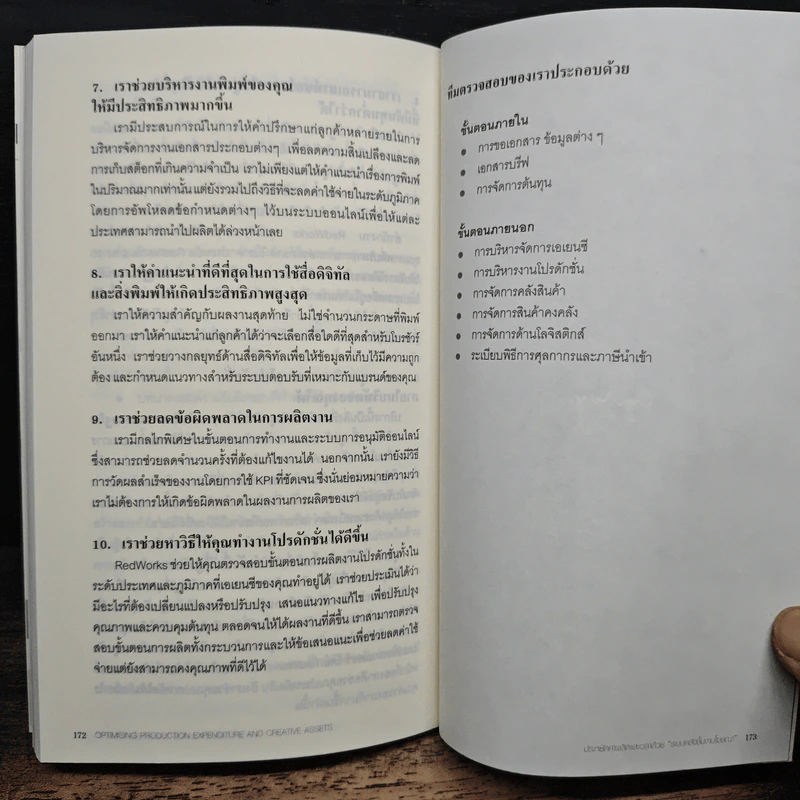 7. เราช่วยบริหารงานพิมพ์ของคุณ
ให้มีประสิทธิภาพมากขึ้น
เรามีประสบการณ์ในการให้คำปรึกษาแก่ลูกค้าหลายรายในการ
บริหารจัดการงานเอกสารประกอบต่างๆ เพื่อลดความสิ้นเปลืองและลด
การเก็บสต็อกที่เกินความจำเป็น เราไม่เพียงแต่ให้คำแนะนำเรื่องการพิมพ์
ในปริมาณมากเท่านั้น แต่ยังรวมไปถึงวิธีที่จะลดค่าใช้จ่ายในระดับภูมิภาค
โดยการอัพโหลดข้อกำหนดต่างๆ ไว้บนระบบออนไลน์เพื่อให้แต่ละ
ประเทศสามารถนำไปผลิตได้ล่วงหน้าเลย
8. เราให้คำแนะนำที่ดีที่สุดในการใช้สื่อดิจิทัล
และสิ่งพิมพ์ให้เกิดประสิทธิภาพสูงสุด
เราให้ความสำคัญกับผลงานสุดท้าย ไม่ใช่จำนวนกระดาษที่พิมพ์
ออกมา เราให้คำแนะนำแก่ลูกค้าได้ว่าจะเลือกสื่อใดดีที่สุดสำหรับโบรชัวร์
อันหนึ่ง เราช่วยวางกลยุทธ์ด้านสื่อดิจิทัลเพื่อให้ข้อมูลที่เก็บไว้มีความถูก
ต้อง และกำหนดแนวทางสำหรับระบบตอบรับที่เหมาะกับแบรนด์ของคุณ
9. เราช่วยลดข้อผิดพลาดในการผลิตงาน
เรามีกลไกพิเศษในขั้นตอนการทำงานและระบบการอนุมัติออนไลน์
ซึ่งสามารถช่วยลดจำนวนครั้งที่ต้องแก้ไขงานได้ นอกจากนั้น เรายังมีวิธี
การวัดผลสำเร็จของงานโดยการใช้ KPI ที่ชัดเจน ซึ่งนั่นย่อมหมายความว่า
เราไม่ต้องการให้เกิดข้อผิดพลาดในผลงานการผลิตของเรา
10. เราช่วยหาวิธีให้คุณทำงานโปรดักชั่นได้ดีขึ้น
RedWorks ช่วยให้คุณตรวจสอบขั้นตอนการผลิตงานโปรดักชั่นทั้งใน
ระดับประเทศและภูมิภาคที่เอเยนซีของคุณทำอยู่ได้ เราช่วยประเมินได้ว่า
มีอะไรที่ต้องเปลี่ยนแปลงหรือปรับปรุง เสนอแนวทางแก้ไข เพื่อปรับปรุง
คุณภาพและควบคุมต้นทุน ตลอดจนให้ได้ผลงานที่ดีขึ้น เราสามารถตรวจ
สอบขั้นตอนการผลิตทั้งกระบวนการและให้ข้อเสนอแนะเพื่อช่วยลดค่าใช้
จ่ายแต่ยังสามารถคงคุณภาพที่ดีไว้ได้
172 OPTIMISING PRODUCTION EXPENDITURE AND CREATIVE ASSETS
ทีมตรวจสอบของเราประกอบด้วย
ขั้นตอนภายใน
● การขอเอกสาร ข้อมูลต่าง ๆ
● เอกสารบรีฟ
● การจัดการต้นทุน
ขั้นตอนภายนอก
● การบริหารจัดการเอเยนซี
● การบริหารงานโปรดักชั่น
● การจัดการคลังสินค้า
● การจัดการสินค้าคงคลัง
● การจัดการด้านโลจิสติกส์
● ระเบียบพิธีการศุลกากรและภาษีนำเข้า
173